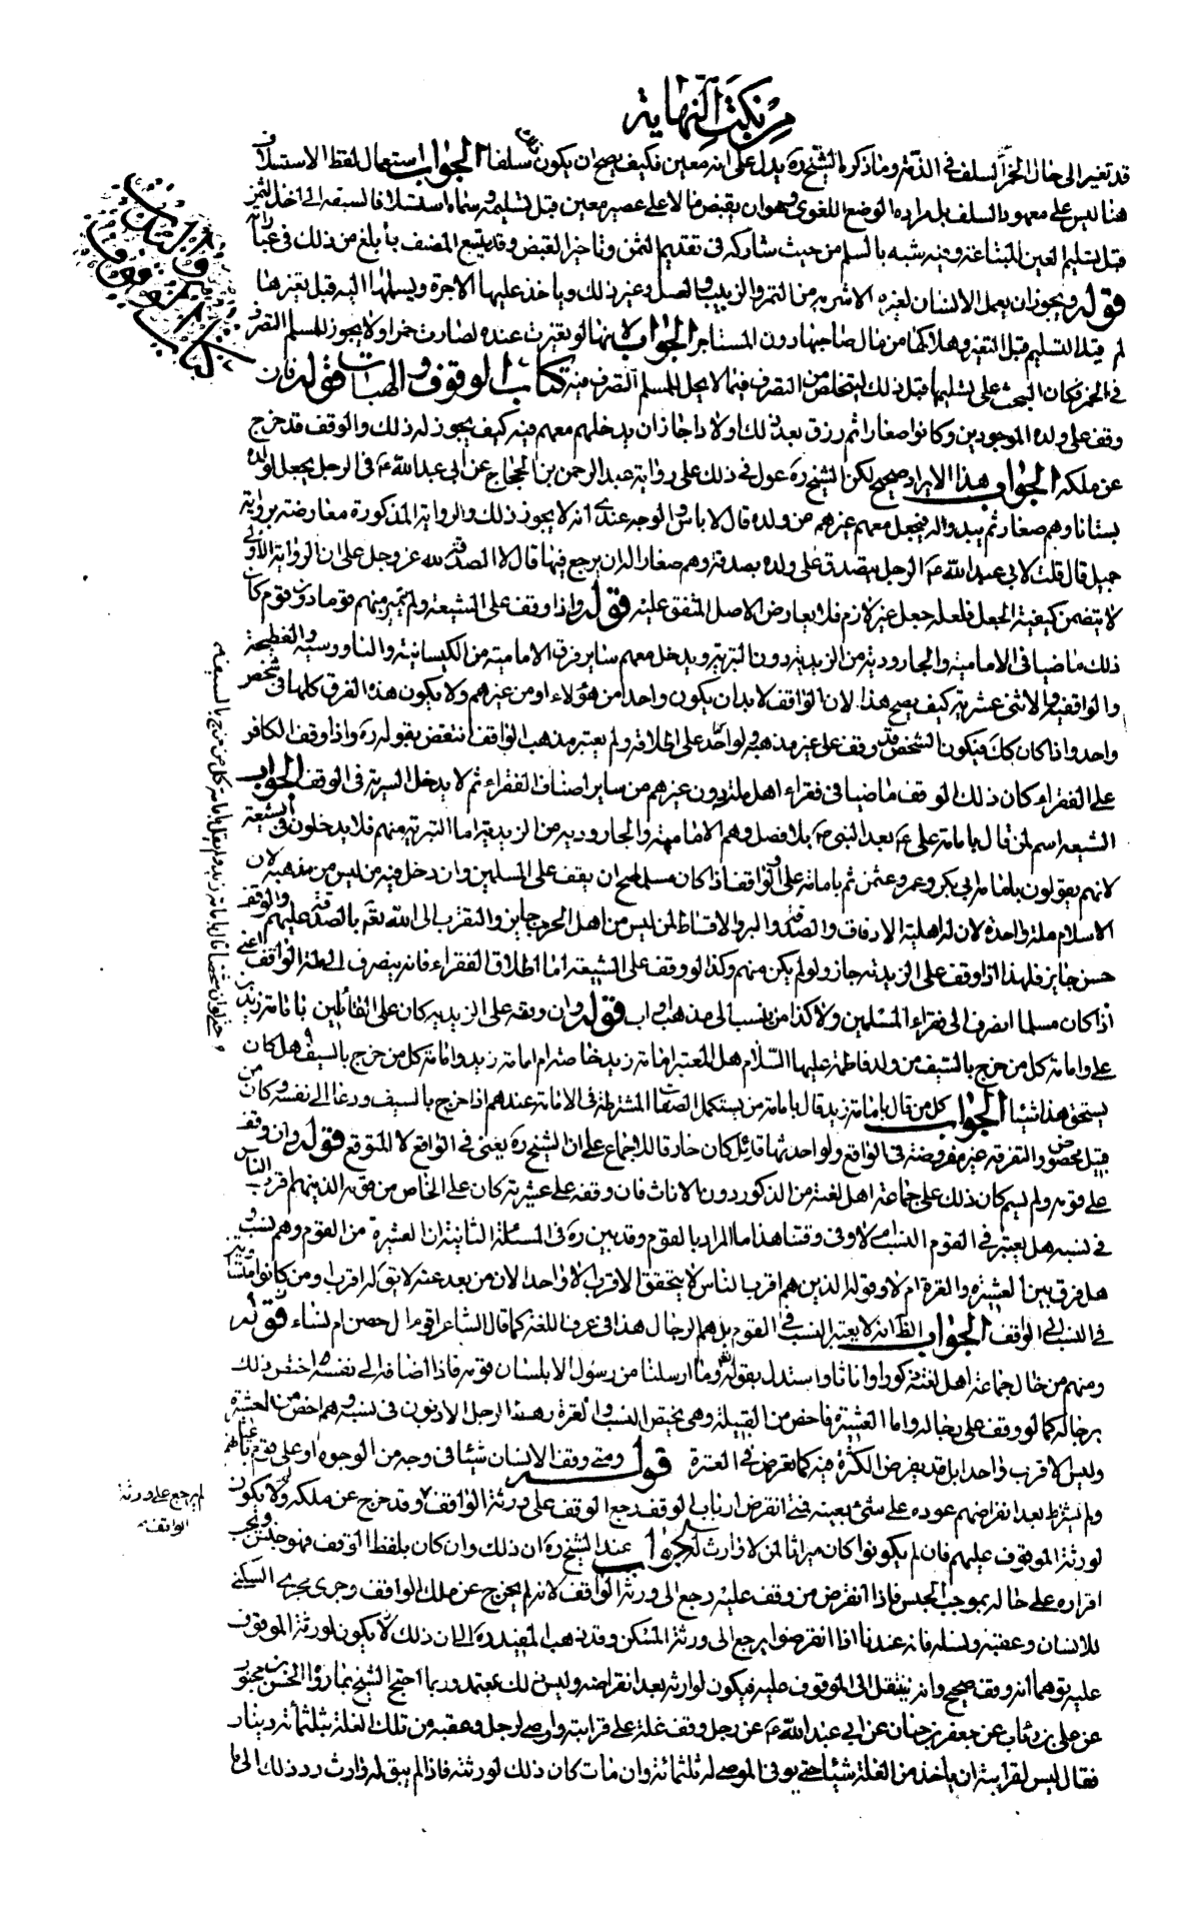 من نكت النهاية
قد تغير الى حال الخمر السلف في الذمة وما ذكره الشيخ ره يدل على انه معين فكيف يصح ان يكون سلفا الجواب استعمال لفظ الاستسلاف
هنا ليس على معهود السلف بل مراده الوضع اللغوي وهو ان يقبض مالا على عصير معين قبل تسليمه وسماه استسلافا لسبقه الى اخذ الثمن
قبل تسليم العين المبتاعة وفيه شبه بالسلم من حيث شاركه في تقديم الثمن وتاخير القبض وقد يتبع المصنف ما بلغ من ذلك في
قوله ويجوز ان يعمل الانسان لغيره الاشربة من التمر والزبيب والعسل وغير ذلك وياخذ عليها الاجرة ويسلمها اليه قبل تغيرها
لم قبل التسليم قبل التغير وهلاكها من مال صاحبها دون المستاجر الجواب لانها لو تغيرت عنده لصارت خمرا ولا يجوز للمسلم التصرف
في الخمر فكان البحث على تسليمها قبل ذلك ليتخلص من التصرف فيما لا يحل للمسلم التصرف فيه كتاب الوقوف والهبات قوله فان
وقف على ولده الموجودين وكانوا صغارا ثم رزق بعد ذلك اولادا جاز ان يدخلهم معهم فيه كيف يجوز له ذلك والوقف قد خرج
عن ملكه الجواب هذا الايراد صحيح لكن الشيخ ره عول في ذلك على رواية عبد الرحمن بن الحجاج عن ابي عبد الله ع في الرجل يجعل لولده
بستانا وهم صغار ثم يبدو له فيجعل معهم غيرهم من ولده قال لا باس والوجه عندي انه لا يجوز ذلك والرواية المذكورة معارضة برواية
جميل قال قلت لابي عبد الله ع الرجل يتصدق على ولده بصدقة وهم صغار اله ان يرجع فيها قال لا الصدقة لله عز وجل على ان الرواية الاولى
لا يتضمن كيفية الجعل فلعله جعل غير لازم فلا يعارض الاصل المتفق عليه قوله واذا وقف على الشيعة ولم يميز منهم قوما دون قوم كان
ذلك ماضيا في الامامية والجارودية من الزيدية دون البترية ويدخل معهم ساير فرق الامامية من الكيسانية والناووسية والفطحية
والواقفية والاثني عشرية كيف يصح هذا لان الواقف لا بد ان يكون واحدا من هؤلاء او من غيرهم ولا يكون هذه الفرق كلها في شخص
واحد واذا كان كك فيكون الشخص قد وقف على غير مذهبه ولو اخذ على اطلاقه ولم يعتبر مذهب الواقف انتقض بقوله ره واذا وقف الكافر
على الفقراء كان ذلك الوقف ماضيا في فقراء اهل ملته دون غيرهم من ساير اصناف الفقراء ثم لا يدخل البترية في الوقف الجواب
الشيعة اسم لمن قال بامامة علي ع بعد النبي ص بلا فصل وهم الامامية والجارودية من الزيدية اما البترية منهم فلا يدخلون في الشيعة
لانهم يقولون بامامة ابي بكر وعمر وعثمن ثم بامامة علي والواقف اذا كان مسلما صح ان يقف على المسلمين وان دخل فيه من ليس من مذهبه لان
الاسلام ملة واحدة لان له اهلية الارفاق والصلة والبر والاقساط لمن ليس من اهل الحرب جايز والتقرب الى الله تعم بالصدقة عليهم والوقف
حسن جايز فلهذا اذا وقف على الزيدية جاز ولو لم يكن منهم وكذا لو وقف على الشيعة اما اطلاق الفقراء فانه ينصرف الى ملة الواقف اعني
اذا كان مسلما انصرف الى فقراء المسلمين ولا كذا من ينسب الى مذهب او اب قوله وان وقفه على الزيدية كان على القائلين بامامة زيد بن
علي وامامة كل من خرج بالسيف من ولد فاطمة عليها السلام هل المعتبر امامة زيد خاصة ام امامة زيد وامامة كل من خرج بالسيف هل كان
يستحق هذا شيئا الجواب كل من قال بامامة زيد قال بامامة من يستكمل الصفات المشترطة في الامامة عندهم اذا خرج بالسيف ودعا الى نفسه وكان من
قبيل مخصوص والتفرقة غير مفروضة في الواقع ولو احدثها قائل كان خارقا للاجماع على ان الشيخ ره يعني في الواقع لا المتوقع قوله وان وقف
على قومه ولم يسم كان ذلك على جماعة اهل لغته من الذكور دون الاناث فان وقفه على عشيرته كان على الخاص من قومه الذين هم اقرب الناس
في نسبه هل يعتبر في القوم النسب ام لا وفي وقتنا هذا ما المراد بالقوم وقد بين ره في المسئلة الثانية ان العشيرة من القوم وهم نسب و
هل فرق بين العشيرة والعترة ام لا وقوله الذين هم اقرب الناس لا يتحقق الاقرب الا واحدا لان من بعد عنه لا يق له اقرب ومن كانوا
في النسب الى الواقف الجواب الظ انه لا يعتبر النسب في القوم بل هم الرجال هذا في عرف اللغة كما قال الشاعر اقوم ال حصن ام نساء قوله
ومنهم من قال جماعة اهل لغته ذكورا واناثا واستدل بقوله تع وما ارسلنا من رسول الا بلسان قومه فاذا اضافه الى نفسه اختص ذلك
برجاله كما لو وقف على رجاله واما العشيرة فاخص من القبيلة وهي يختص النسب والعترة رهط الرجل الادنون في نسبه وهم اخص من العشيرة
وليس الاقرب واحدا بل قد يفرض الكثرة فيه كما تعرض في العترة قوله ومتى وقف الانسان شيئا في وجه من الوجوه او على قوم باعيانهم
ولم يشترط بعد انقراضهم عوده على شئ بعينه فمتى انقرض ارباب الوقف رجع الوقف على ورثة الواقف لم وقد خرج عن ملكه ولم لا يكون
لورثة الموقوف عليهم فان لم يكونوا كان ميراثا لمن لا وارث له الجواب عند الشيخ ره ان ذلك وان كان بلفظ الوقف فهو حبس ويجب
اقراره على حاله بموجب الحبس فاذا انقرض من وقف عليه رجع الى ورثة الواقف لانه لم يخرج عن ملك الواقف وجرى مجرى السكنى
للانسان وعقبه ونسله فانه عندنا اذا انقرضوا يرجع الى ورثة المسكن وقد ذهب المفيد ره الى ان ذلك يكون لورثة الموقوف
عليه توهما انه وقف صحيح وانه ينتقل الى الموقوف عليه فيكون لوارثه بعد انقراضه وليس ذلك بمعتمد وربما احتج الشيخ بما رواه الحسن بن محبوب
عن علي بن رئاب عن جعفر بن حنان عن ابي عبد الله ع عن رجل وقف غلة على قرابته واوصى لرجل وعقبه من تلك الغلة بثلثمائة دينار
فقال ليس لقرابته ان ياخذ من الغلة شيئا حتى يوفى الموصى له ثلثمائة وان مات كان ذلك لورثته فاذا لم يبق له وارث رد ذلك الى ما
كتاب الوقوف والهبات
حتى لو ان شخصا قال بامامة زيد ولم يقل بامامة كل من خرج بالسيف
لم يرجع على ورثة
الواقف